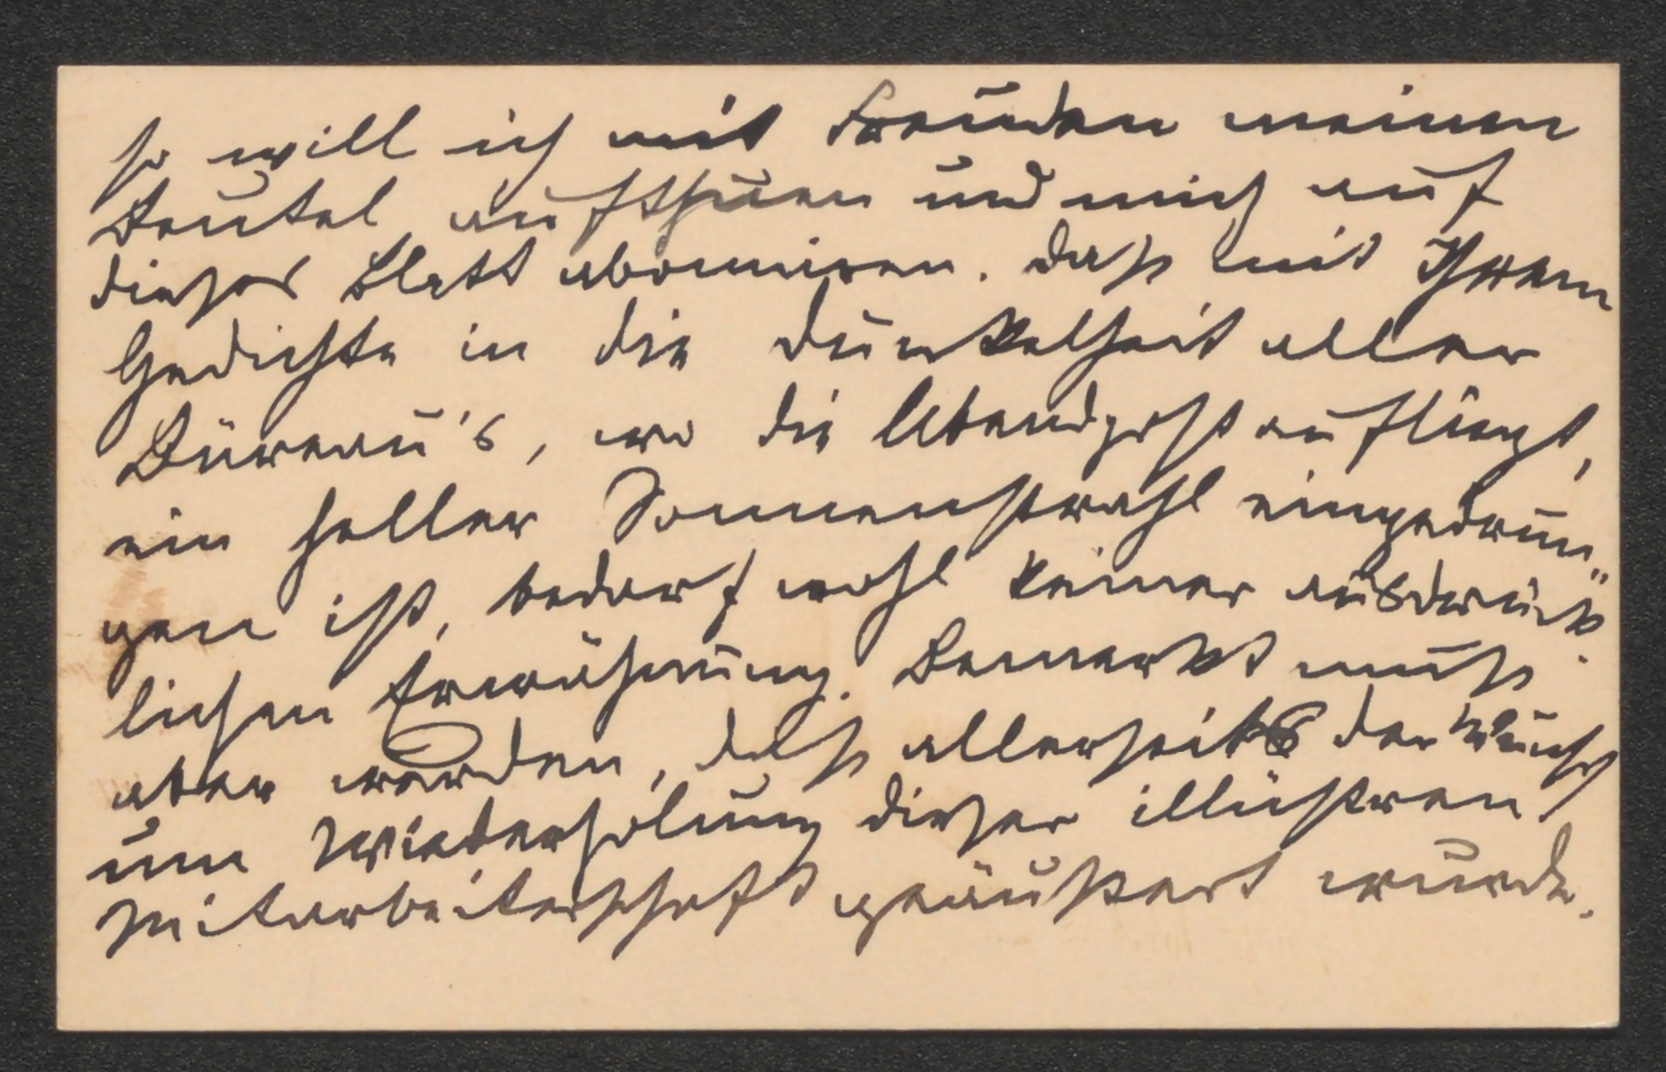 so will ich mit Freuden meinen
Beutel aufthuen und mich auf
dieses Blatt abonniren. Daß mit Ihrem
Gedichte in die Dunkelheit aller
Büreau's, wo die Abendpost aufliegt,
ein heller Sonnenstrahl eingedrun"
gen ist, bedarf wohl keiner ausdrück-
lichen Erwähnung. Bemerkt muß
aber werden, daß allerseits der Wunsch
um Wiederholung dieser illustren
Mitarbeiterschaft geäußert wurde.